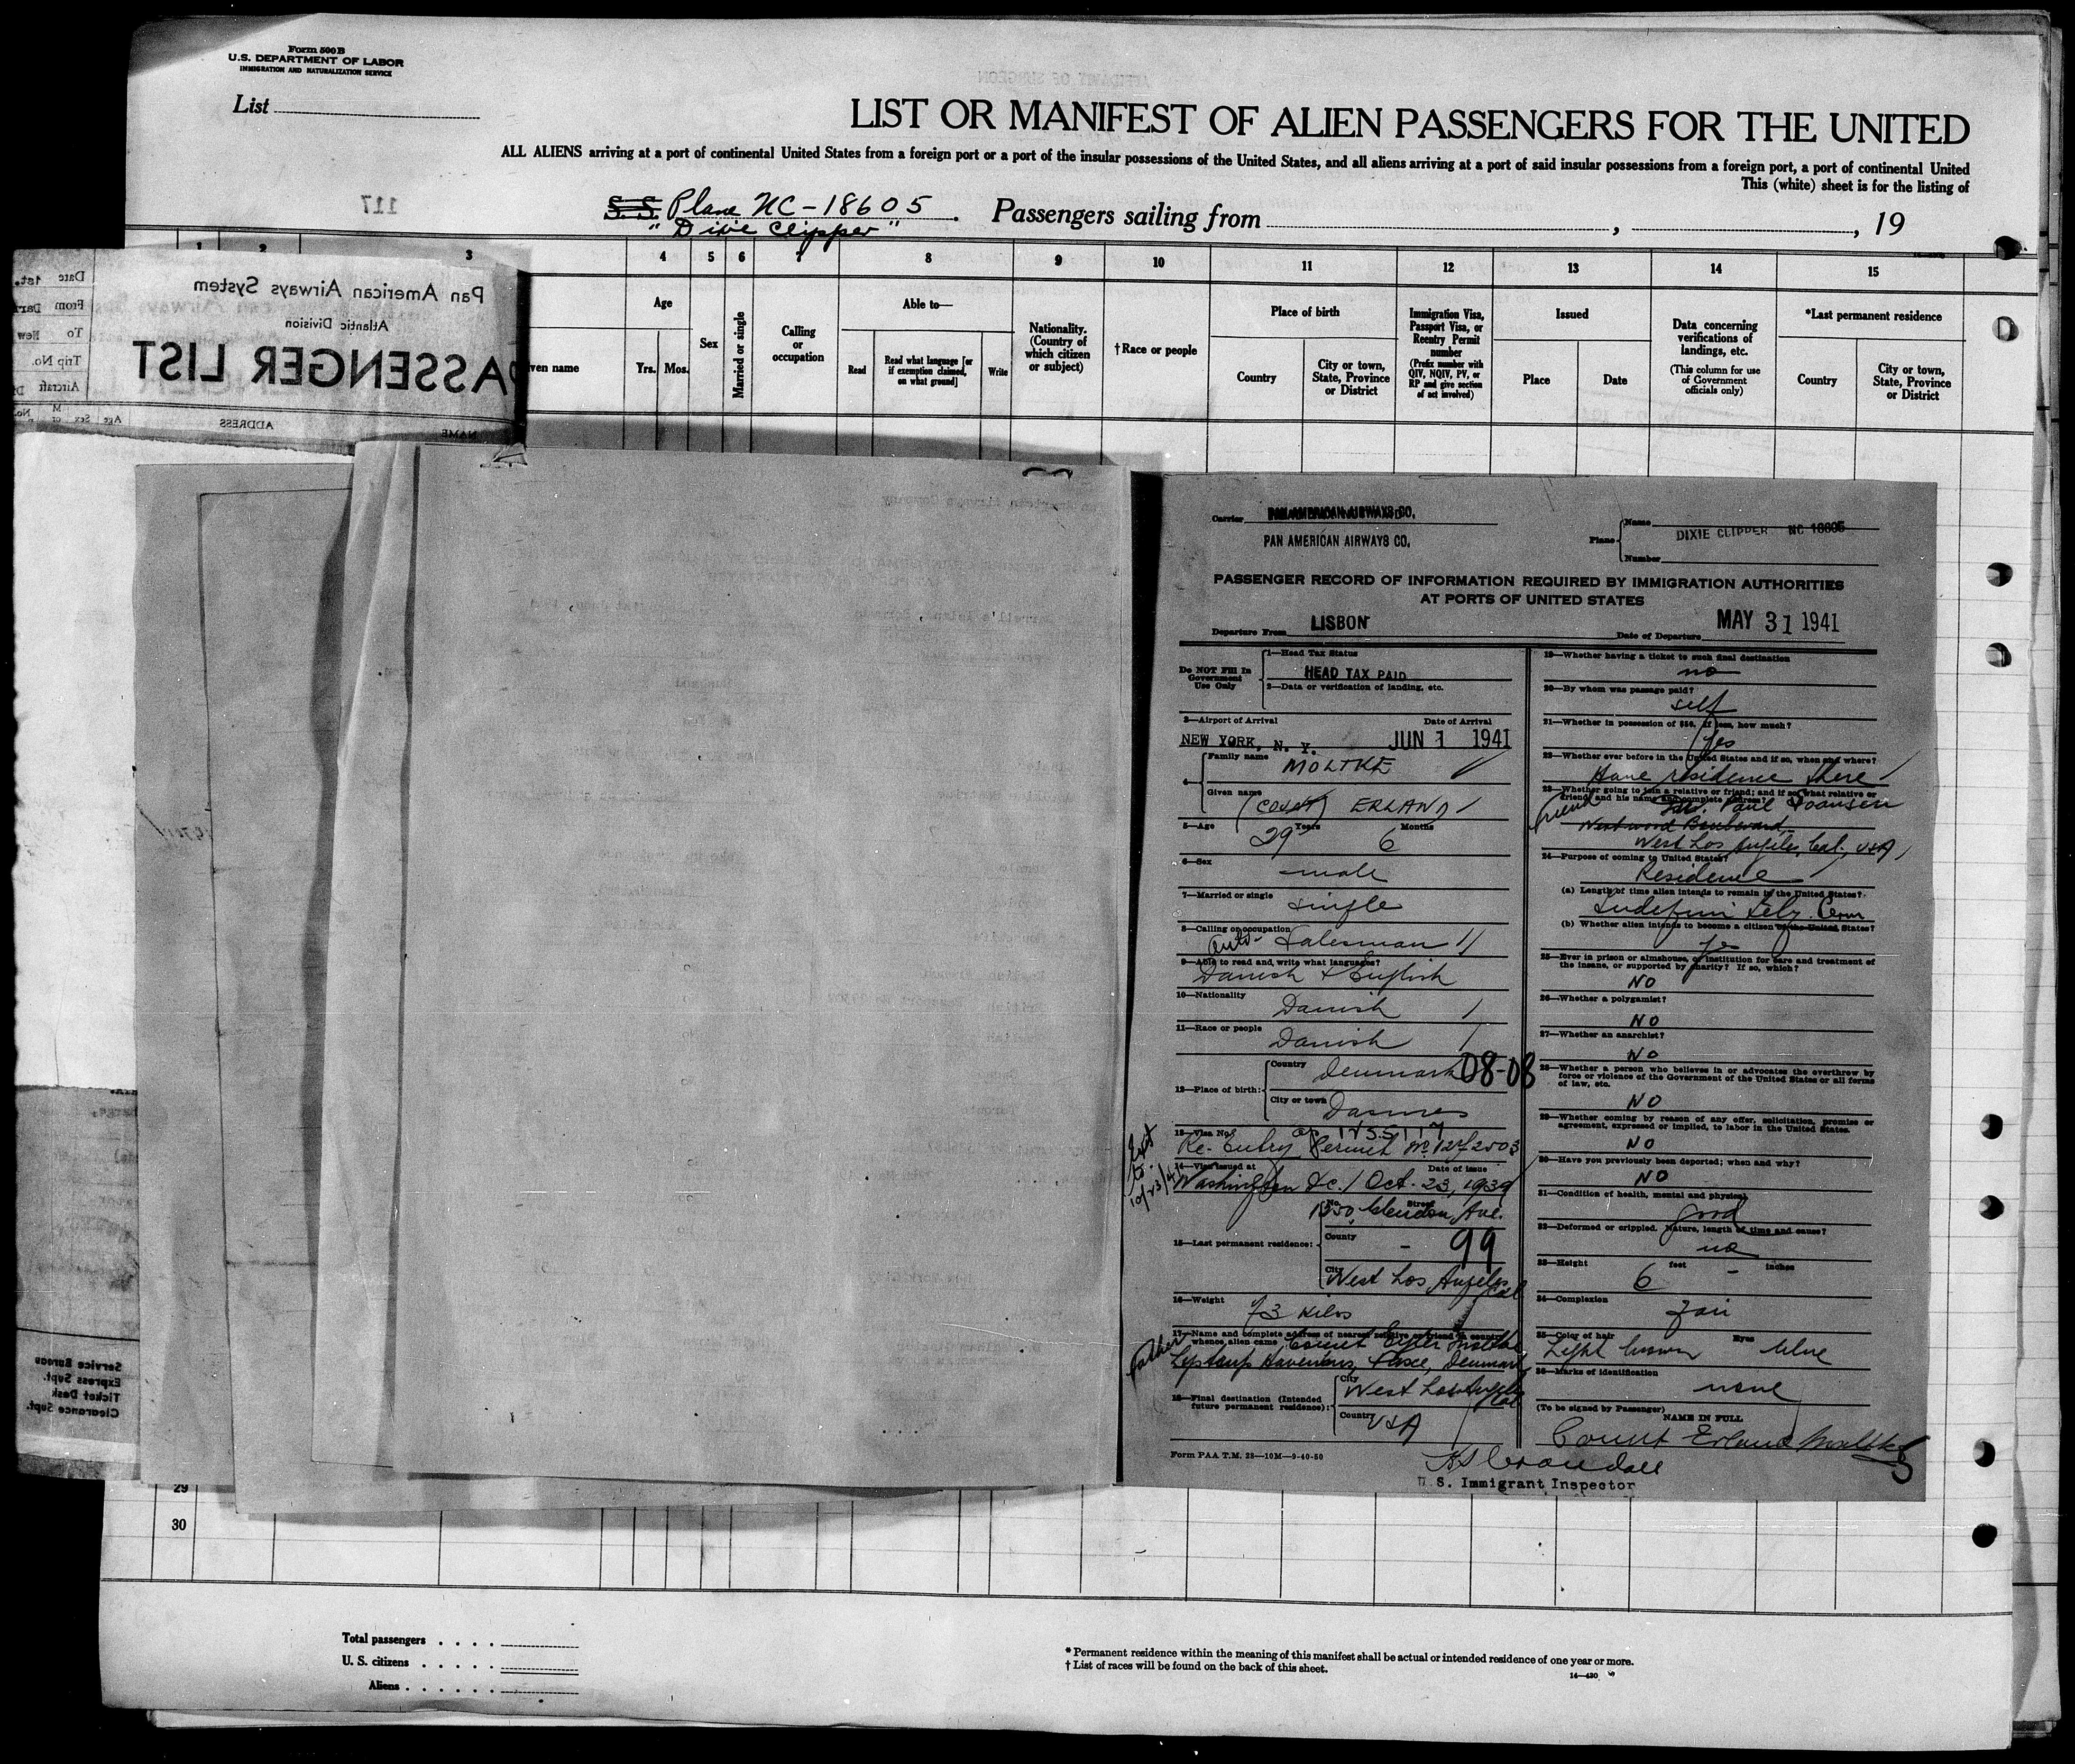 Form 500 B
U.S. DEPARTMENT OF LABOR
IMMIGRATION AND NATURALIZATION SERVICE
List
LIST OR MANIFEST OF ALIEN PASSENGERS FOR THE UNITED
ALL ALIENS arriving at a port of continental United States from a foreign port or a port of the insular possessions of the United States, and all aliens arriving at a port of said insular possessions from a foreign port, a port of continental United
This (white) sheet is for the listing of
117
S. S. Plane NC-18605 Passengers sailing from , , 19
"Dixie Clipper"
1 2 3 4 5 6 7 8 9 10 11 12 13 14 15
Pan American Airways System
Atlantic Division
PASSENGER LIST
Date 1st.
From
To New
Trip No.
Aircraft
NAME ADDRESS Age Sex M or No.
ven name
Age
Yrs. Mos.
Sex
Married or single
Calling or occupation
Able to—
Read
Read what language [or if exemption claimed, on what ground]
Write
Nationality. (Country of which citizen or subject)
†Race or people
Place of birth
Country
City or town, State, Province or District
Immigration Visa, Passport Visa, or Reentry Permit number
(Prefix number with QIV, NQIV, PV, or RP and give section of act involved)
Issued
Place
Date
Data concerning verifications of landings, etc.
(This column for use of Government officials only)
*Last permanent residence
Country
City or town, State, Province or District
Carrier PAN AMERICAN AIRWAYS CO.
PAN AMERICAN AIRWAYS CO.
Plane Name DIXIE CLIPPER NC 18605
Number
PASSENGER RECORD OF INFORMATION REQUIRED BY IMMIGRATION AUTHORITIES
AT PORTS OF UNITED STATES
Departure From LISBON Date of Departure MAY 31 1941
Do NOT Fill In Government Use Only
1—Head Tax Status
HEAD TAX PAID
2—Data or verification of landing, etc.
3—Airport of Arrival Date of Arrival
NEW YORK, N. Y. JUN 1 1941
4—
Family name MOLTKE
Given name (COUNT) ERLAND
5—Age 29 Years 6 Months
6—Sex
male
7—Married or single
single
8—Calling or occupation
Auto- Salesman
9—Able to read and write what languages?
Danish & English
10—Nationality
Danish
11—Race or people
Danish
12—Place of birth:
Country Denmark 08-08
City or town
13—Visa No.
Re-Entry Permit No
14—Visa issued at Date of issue
Washington D.C. Oct. 23, 1939
Ext to 10/23/41
15—Last permanent residence:
No. Street Ave.
County - 99
City West Los Angeles Cal
16—Weight
73 kilos
17—Name and complete address of nearest relative or friend in country whence alien came
Father
Count Moltke
Denmark
18—Final destination (Intended future permanent residence):
City West Los Angeles Cal
Country USA
Form PAA T.M. 28—10M—9-40-50
19—Whether having a ticket to such final destination
no
20—By whom was passage paid?
self
21—Whether in possession of $50, if less, how much?
Yes
22—Whether ever before in the United States and if so, when and where?
Have residence there
23—Whether going to join a relative or friend; and if so, what relative or friend, and his name and complete address?
friend
Paul
Westwood Boulevard,
West Los Angeles, Cal., USA
24—Purpose of coming to United States?
Residence
(a) Length of time alien intends to remain in the United States?
Indefinitely. Perm
(b) Whether alien intends to become a citizen of the United States?
yes
25—Ever in prison or almshouse, or institution for care and treatment of the insane, or supported by charity? If so, which?
NO
26—Whether a polygamist?
NO
27—Whether an anarchist?
NO
28—Whether a person who believes in or advocates the overthrow by force or violence of the Government of the United States or all forms of law, etc.
NO
29—Whether coming by reason of any offer, solicitation, promise or agreement, expressed or implied, to labor in the United States.
NO
30—Have you previously been deported; when and why?
NO
31—Condition of health, mental and physical
good
32—Deformed or crippled. Nature, length of time and cause?
no
33—Height
6 feet - inches
34—Complexion
fair
35—Color of hair Eyes
Light brown blue
36—Marks of identification
none
(To be signed by Passenger)
NAME IN FULL
Count Erland Moltke
U. S. Immigrant Inspector
Service Bureau
Express Supt.
Ticket Desk
Clearance Supt.
29
30
Total passengers . . . .
U. S. citizens . . . . .
Aliens . . . . . .
* Permanent residence within the meaning of this manifest shall be actual or intended residence of one year or more.
† List of races will be found on the back of this sheet.
14—430